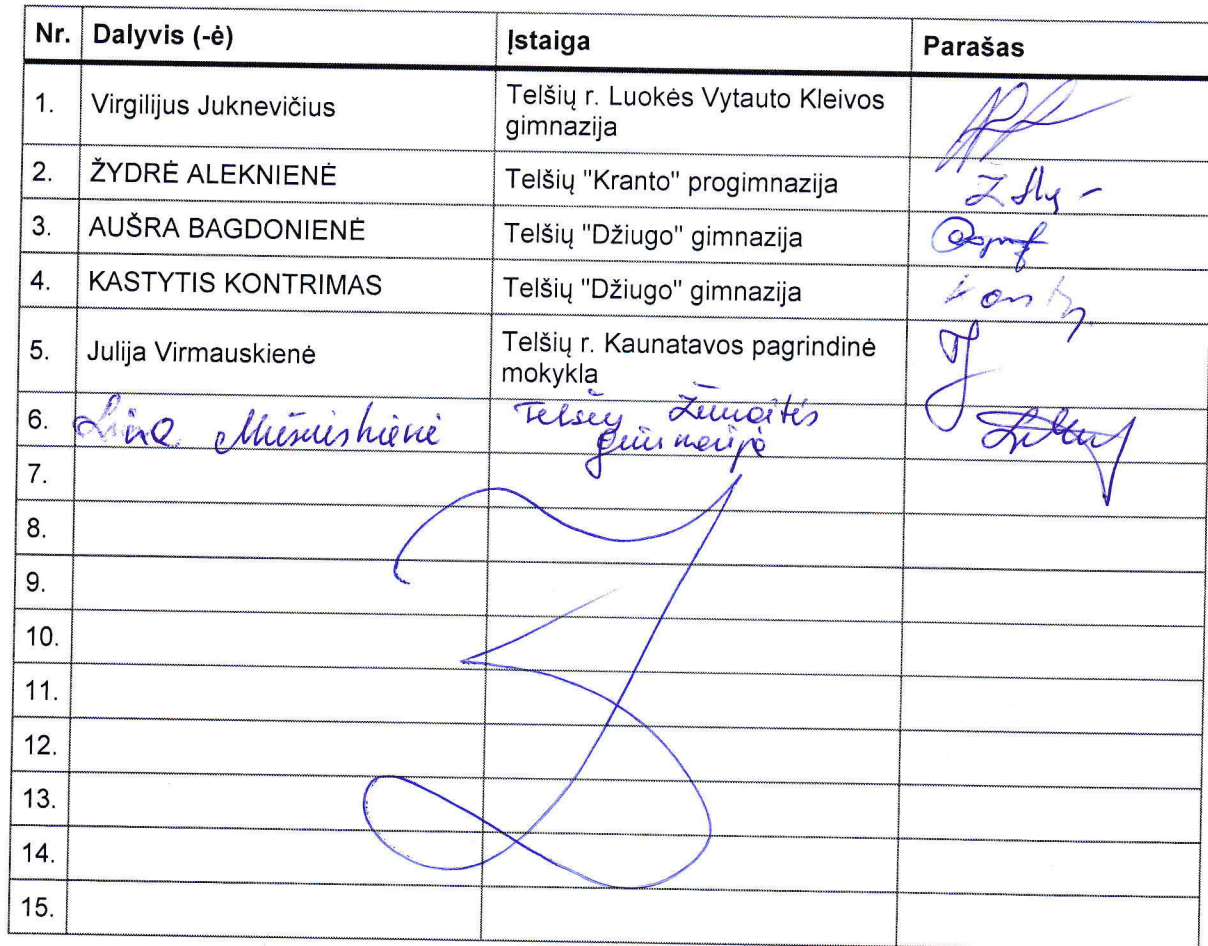 Nr. Dalyvis (-ė) Įstaiga Parašas
1. Virgilijus Juknevičius Telšių r. Luokės Vytauto Kleivos
gimnazija
2. ŽYDRĖ ALEKNIENĖ Telšių "Kranto" progimnazija
3. AUŠRA BAGDONIENĖ Telšių "Džiugo" gimnazija
4. KASTYTIS KONTRIMAS Telšių "Džiugo" gimnazija
5. Julija Virmauskienė Telšių r. Kaunatavos pagrindinė
mokykla
6. Lina Telšių Žemaitės
gimnazija
7.
8.
9.
10.
11.
12.
13.
14.
15.